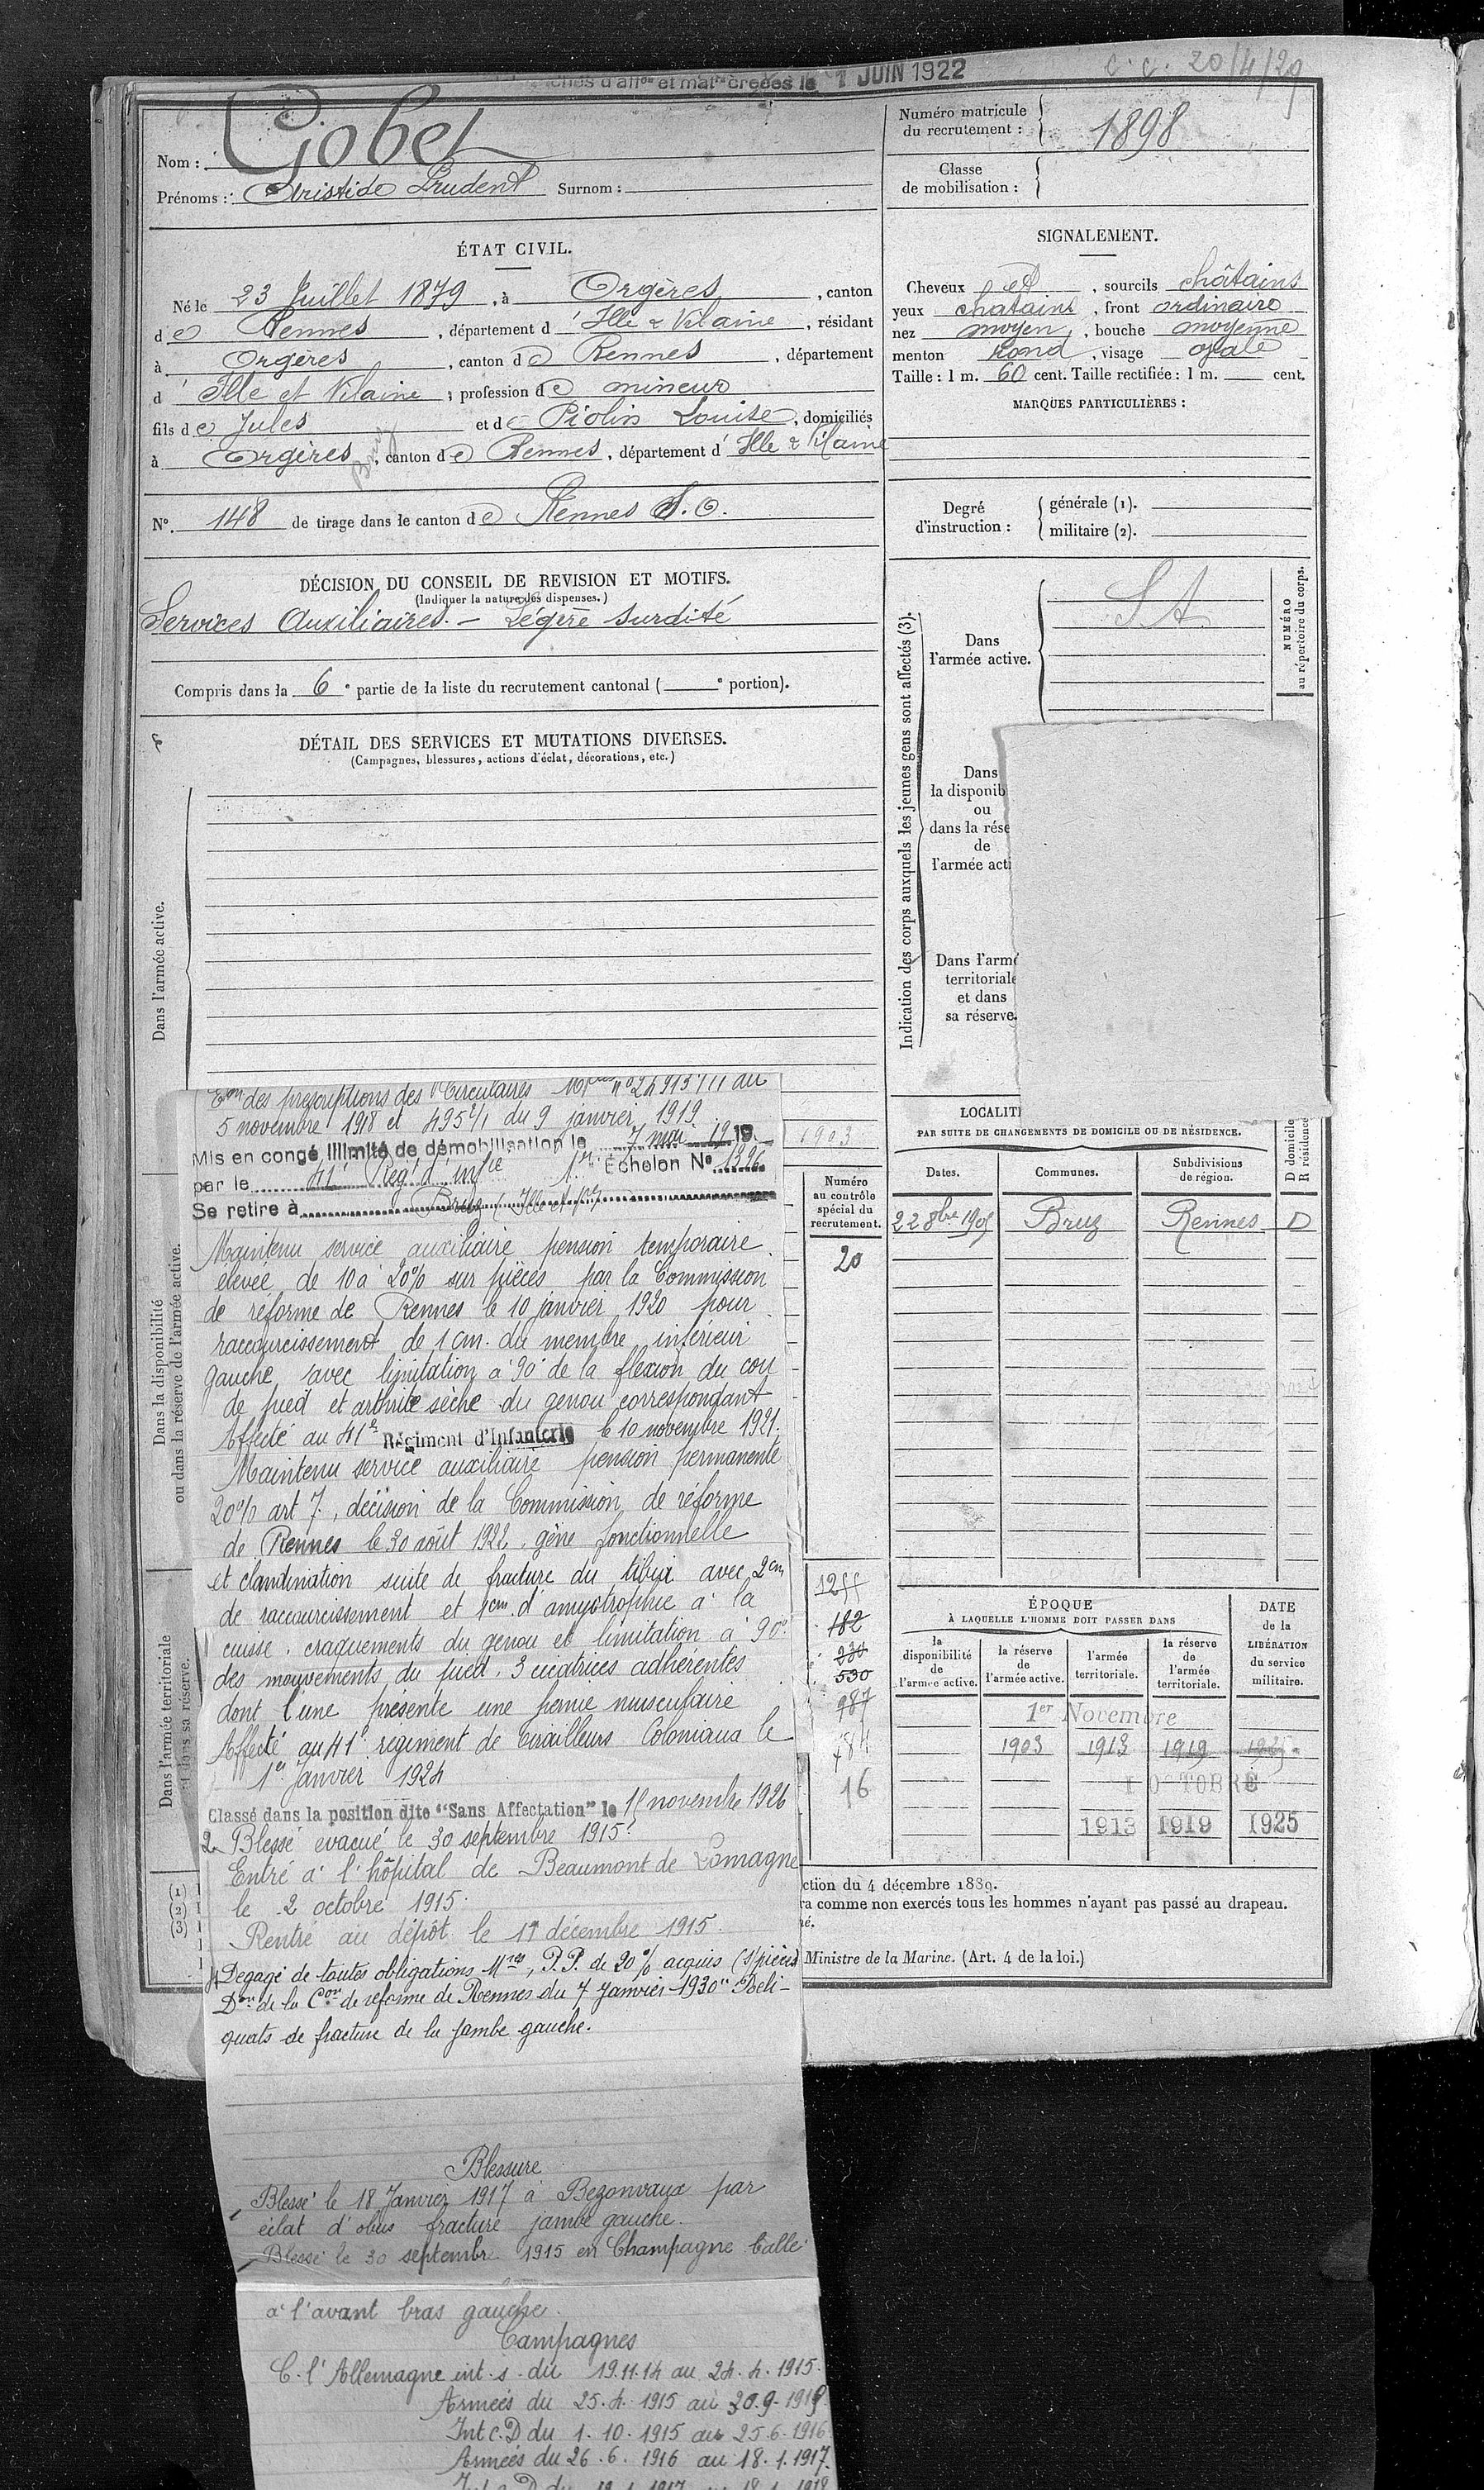 ches d'affon et matle créées le 1 JUIN 1922
c. c. 20/4/29
Nom : Gobet
Prénoms : Aristide Prudent Surnom :
Numéro matricule du recrutement : 1898
Classe de mobilisation :
ÉTAT CIVIL.
Né le 23 Juillet 1879, à Orgères, canton
de Rennes, département d'Ille & Vilaine, résidant
à Orgères, canton de Rennes, département
d'Ille et Vilaine, profession de mineur
fils de Jules et de Piolin Louise, domiciliés
à Orgères, canton de Rennes, département d'Ille & Vilaine
Bruz
N° 148 de tirage dans le canton de Rennes S.O.
SIGNALEMENT.
Cheveux et, sourcils châtains
yeux chatains, front ordinaire
nez moyen, bouche moyenne
menton rond, visage ovale
Taille : 1 m. 60 cent. Taille rectifiée : 1 m. cent.
MARQUES PARTICULIÈRES :
Degré d'instruction : générale (1).
militaire (2).
DÉCISION DU CONSEIL DE REVISION ET MOTIFS.
(Indiquer la nature des dispenses.)
Services Auxiliaires. - Légère surdité
Compris dans la 6e partie de la liste du recrutement cantonal ( e portion).
DÉTAIL DES SERVICES ET MUTATIONS DIVERSES.
(Campagnes, blessures, actions d'éclat, décorations, etc.)
Dans l'armée active.
Dans la disponibilité
ou dans la réserve de l'armée active.
Dans l'armée territoriale
et dans sa réserve.
Indication des corps auxquels les jeunes gens sont affectés (3).
Dans
l'armée active.
S A
NUMÉRO
au répertoire du corps.
Dans
la disponib
ou
dans la rése
de
l'armée acti
Dans l'armé
territoriale
et dans
sa réserve.
Eon des prescriptions des Circulaires Mlles n° 24913 1/11 du
5 novembre 1918 et 495 2/1 du 9 janvier 1919
Mis en congé illimité de démobilisation le 7 mai 1919.
par le 41e Rég. d'Infie 1er Echelon No 1396
Se retire à Bruz (Ille et
Maintenu service auxiliaire pension temporaire
élevée de 10 à 20% sur pièces par la Commission
de réforme de Rennes le 10 janvier 1920 pour
raccourcissement de 1 cm. du membre inférieur
gauche avec limitation à 90° de la flexion du cou
de pied et arthrite sèche du genou correspondant
Affecté au 41e Régiment d'Infanterie le 10 novembre 1921.
Maintenu service auxiliaire pension permanente
20% art 7, décision de la Commission de réforme
de Rennes le 30 août 1922, gêne fonctionnelle
et claudination suite de fracture du tibia avec 2cm
de raccourcissement et 1cm d'amyotrophie à la
cuisse. craquements du genou et limitation à 90°
des mouvements du pied. 3 cicatrices adhérentes
dont l'une présente une hernie musculaire
Affecté au 41e régiment de Tirailleurs Coloniaux le
1er Janvier 1924
Classé dans la position dite "Sans Affectation" le 15 novembre 1926
2. Blessé évacué le 30 septembre 1915.
Entré à l'hôpital de Beaumont de Lomagne
le 2 octobre 1915.
Rentré au dépôt le 17 décembre 1915.
Dégagé de toutes obligations Mres, P.P. de 20% acquis (s/pièces)
Don de la Con de réforme de Rennes du 7 Janvier 1930 "Reli-
quats de fracture de la jambe gauche.
Blessure
Blessé le 18 Janvier 1917 à Bezonvaux par
éclat d'obus fracture jambe gauche.
Blessé le 30 septembre 1915 en Champagne balle
à l'avant bras gauche.
Campagnes
C. l'Allemagne int. s. du 19.11.14 au 24.4.1915.
Armées du 25.4.1915 au 30.9.1915
Int C.D du 1.10.1915 au 25.6.1916
Armées du 26.6.1916 au 18.1.1917.
1903
Numéro
au contrôle
spécial du
recrutement.
20
1255
182
230
530
987
784
16
LOCALIT
PAR SUITE DE CHANGEMENTS DE DOMICILE OU DE RÉSIDENCE.
Dates. Communes. Subdivisions de région. D domicile R résidence
22 8bre 1905 Bruz Rennes D
ÉPOQUE
À LAQUELLE L'HOMME DOIT PASSER DANS
la disponibilité de l'armée active. la réserve de l'armée active. l'armée territoriale. la réserve de l'armée territoriale.
DATE de la LIBÉRATION du service militaire.
1er Novembre
1903 1913 1919 1925
1 OCTOBRE
1913 1919 1925
(1)
(2)
(3)
ction du 4 décembre 1889.
ra comme non exercés tous les hommes n'ayant pas passé au drapeau.
né.
Ministre de la Marine. (Art. 4 de la loi.)